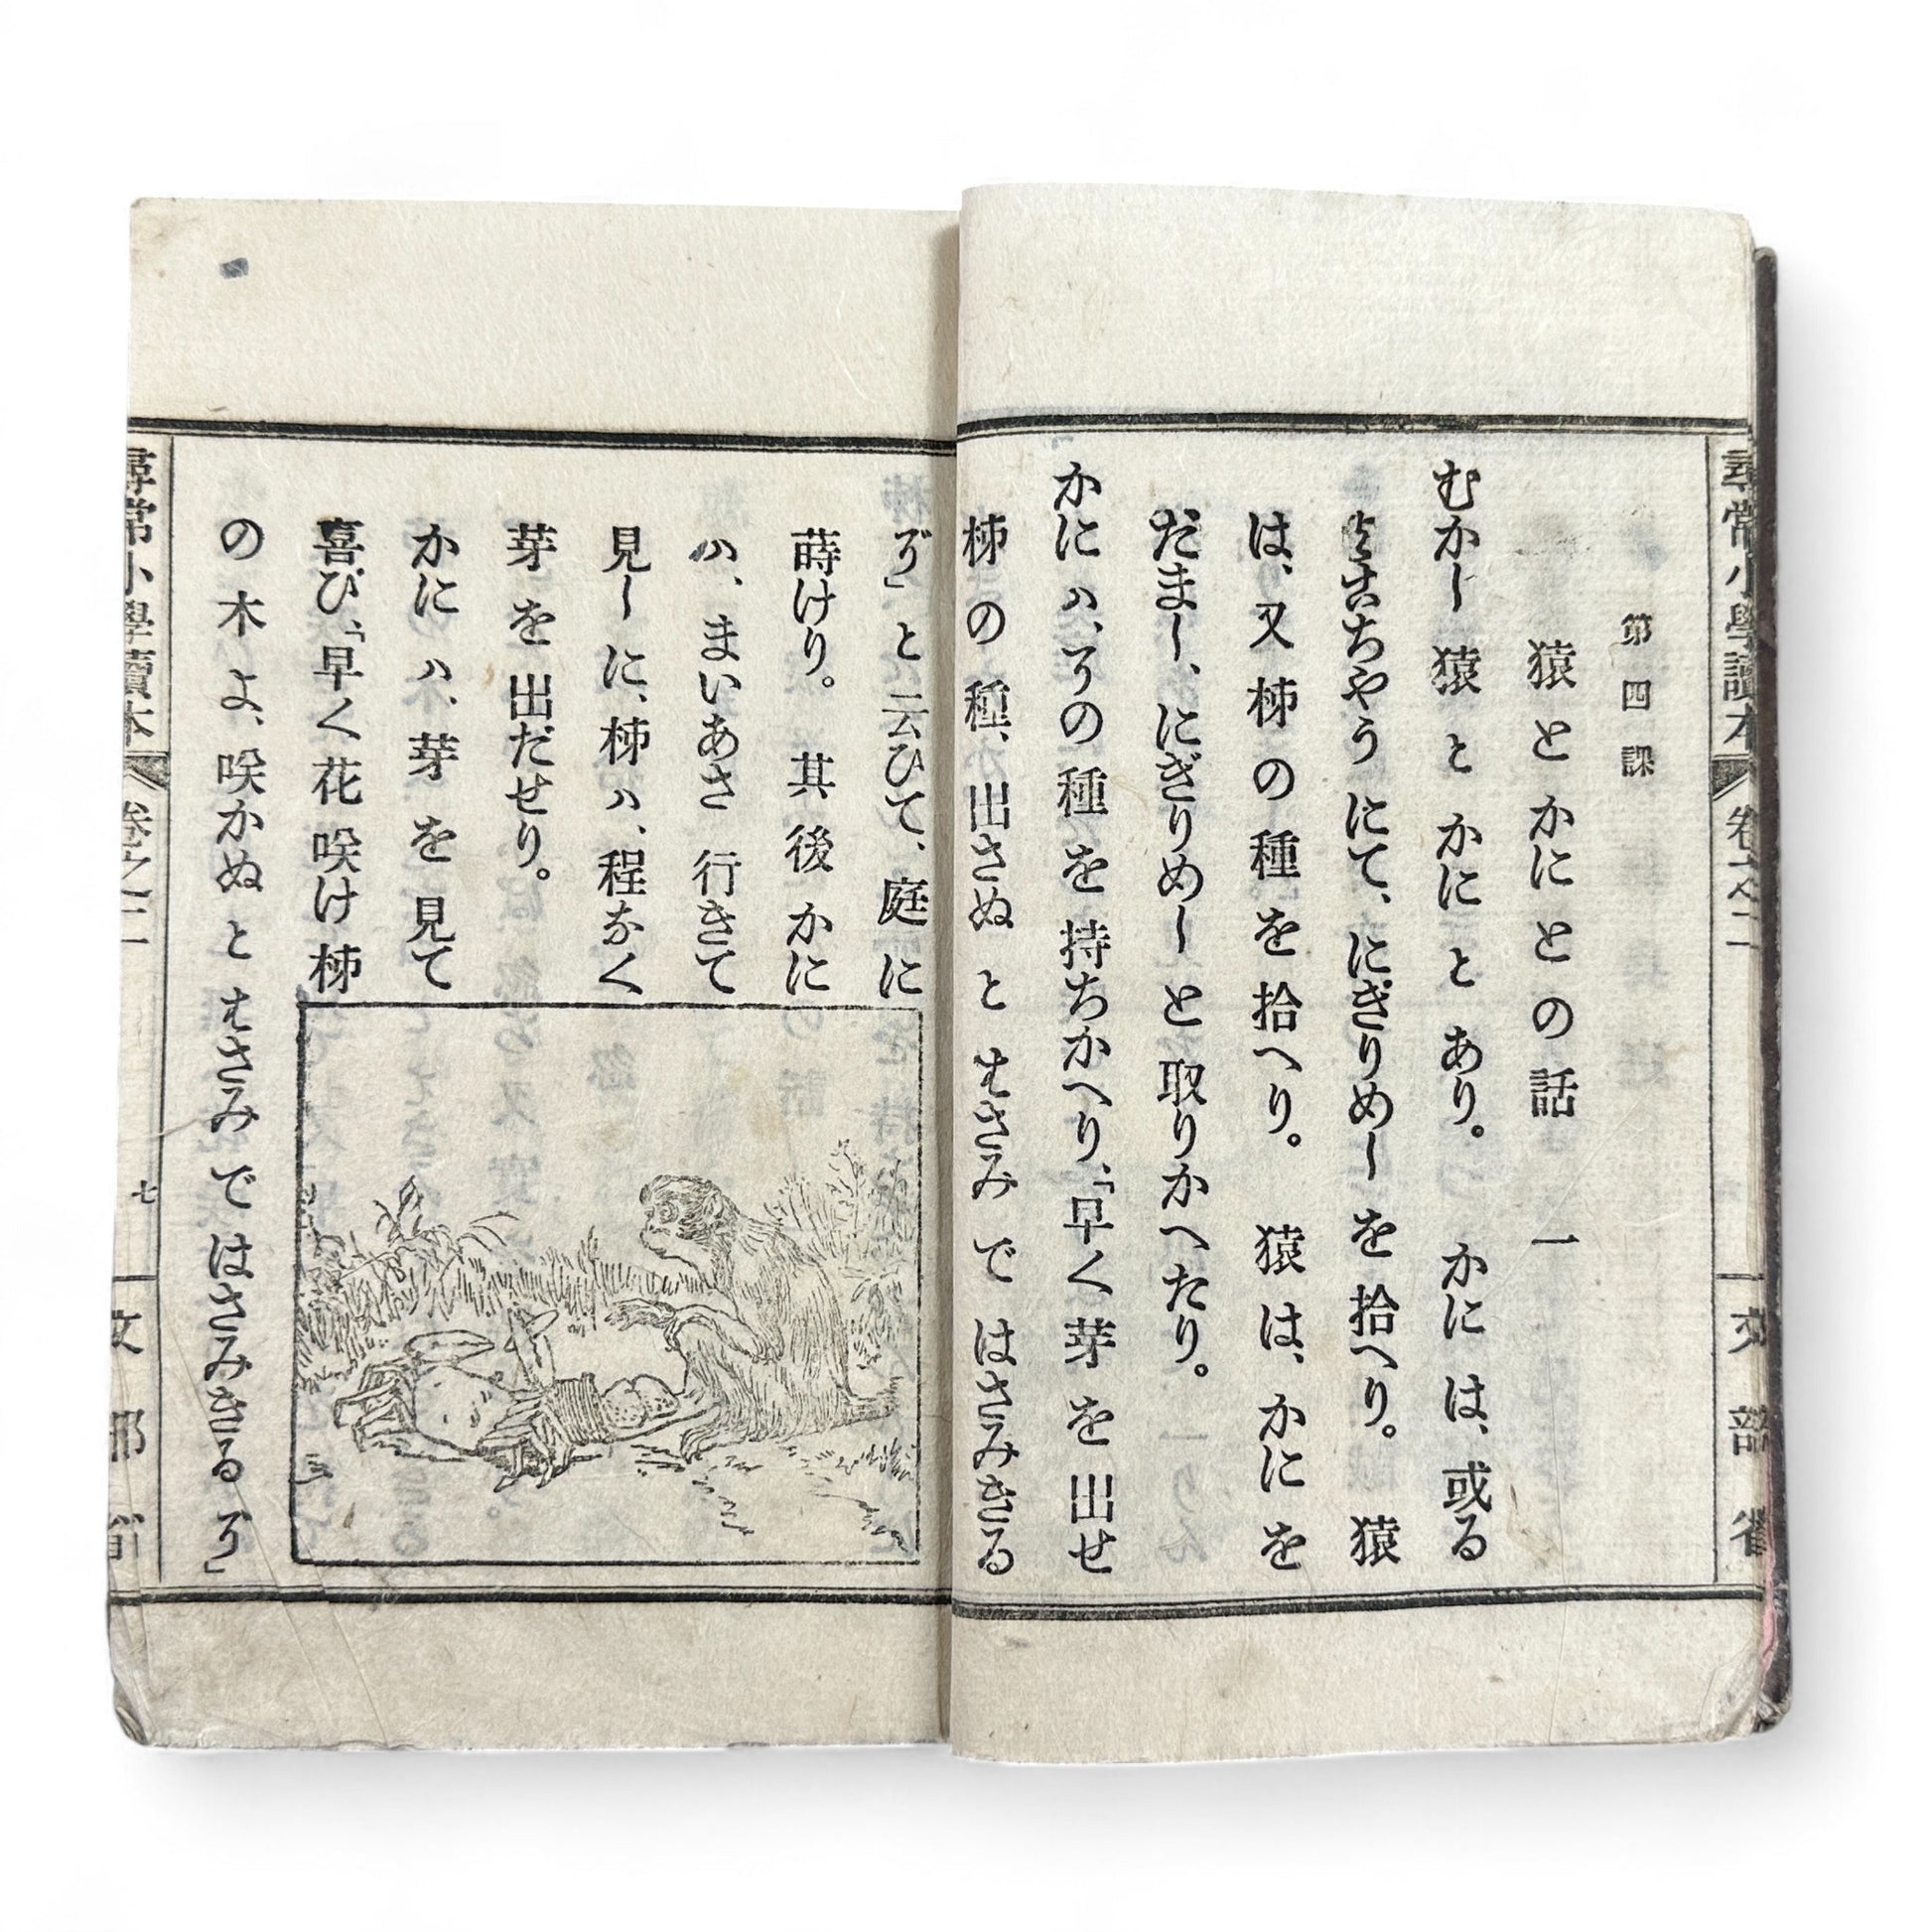 尋常小學讀本 卷之二 文部省
第四課
猿とかにとの話 一
むかし 猿 と かに と あり。 かに は、或る
よこちやう にて、にぎりめし を 拾へり。 猿
は、又 柿 の 種 を 拾へり。 猿 は、かに を
だまし、にぎりめし と 取りかへたり。
かに ハ、その 種 を 持ちかへり、「早く 芽 を 出せ
柿 の 種、出さぬ と はさみ で はさみきる
ぞ」と 云ひて、庭 に
蒔けり。 其 後 かに
ハ、まいあさ 行きて
見し に、柿 ハ、程なく
芽 を 出だせり。
かに ハ、芽 を 見て
喜び、「早く 花 咲け 柿
の 木 よ、咲かぬ と はさみ で はさみきる ぞ」
尋常小學讀本 卷之二 七 文部省